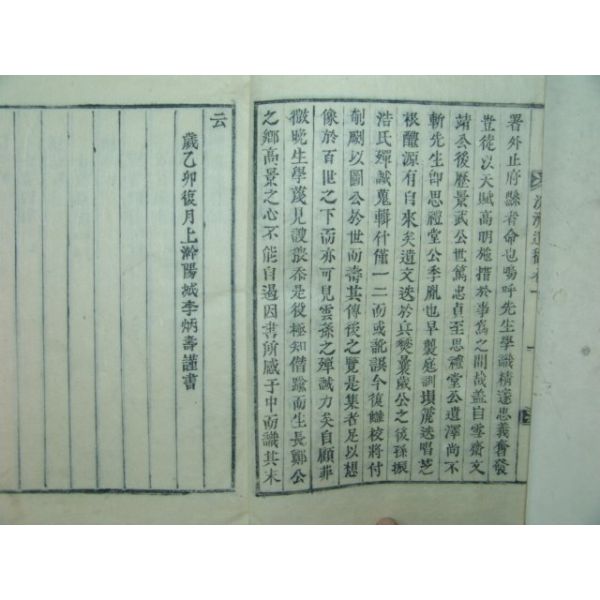 署外止府縣者命也嗚呼先生學識精邃忠義奮發
豈徒以天賦高明施措於事爲之間哉盖自雲齋文
靖公後歷景武公世篤忠貞至思禮堂公遺澤尚不
斬先生卽思禮堂公季胤也早襲庭訓塤箎迭唱芝
根醴源有自來矣遺文迭於兵燹曩歲公之後孫振
浩氏殫誠蒐輯什僅一二而或訛誤今復讎校將付
剞劂以圖公於世而壽其傳後之覽是集者足以想
像於百世之下而亦可見雲孫之殫誠力矣自顧非
微晩生學蔑見謏猥忝是役極知僭踰而生長鄭公
之鄕高景之心不能自遏因書所感于中而識其末
云
歲乙卯復月上澣陽城李炳壽謹書